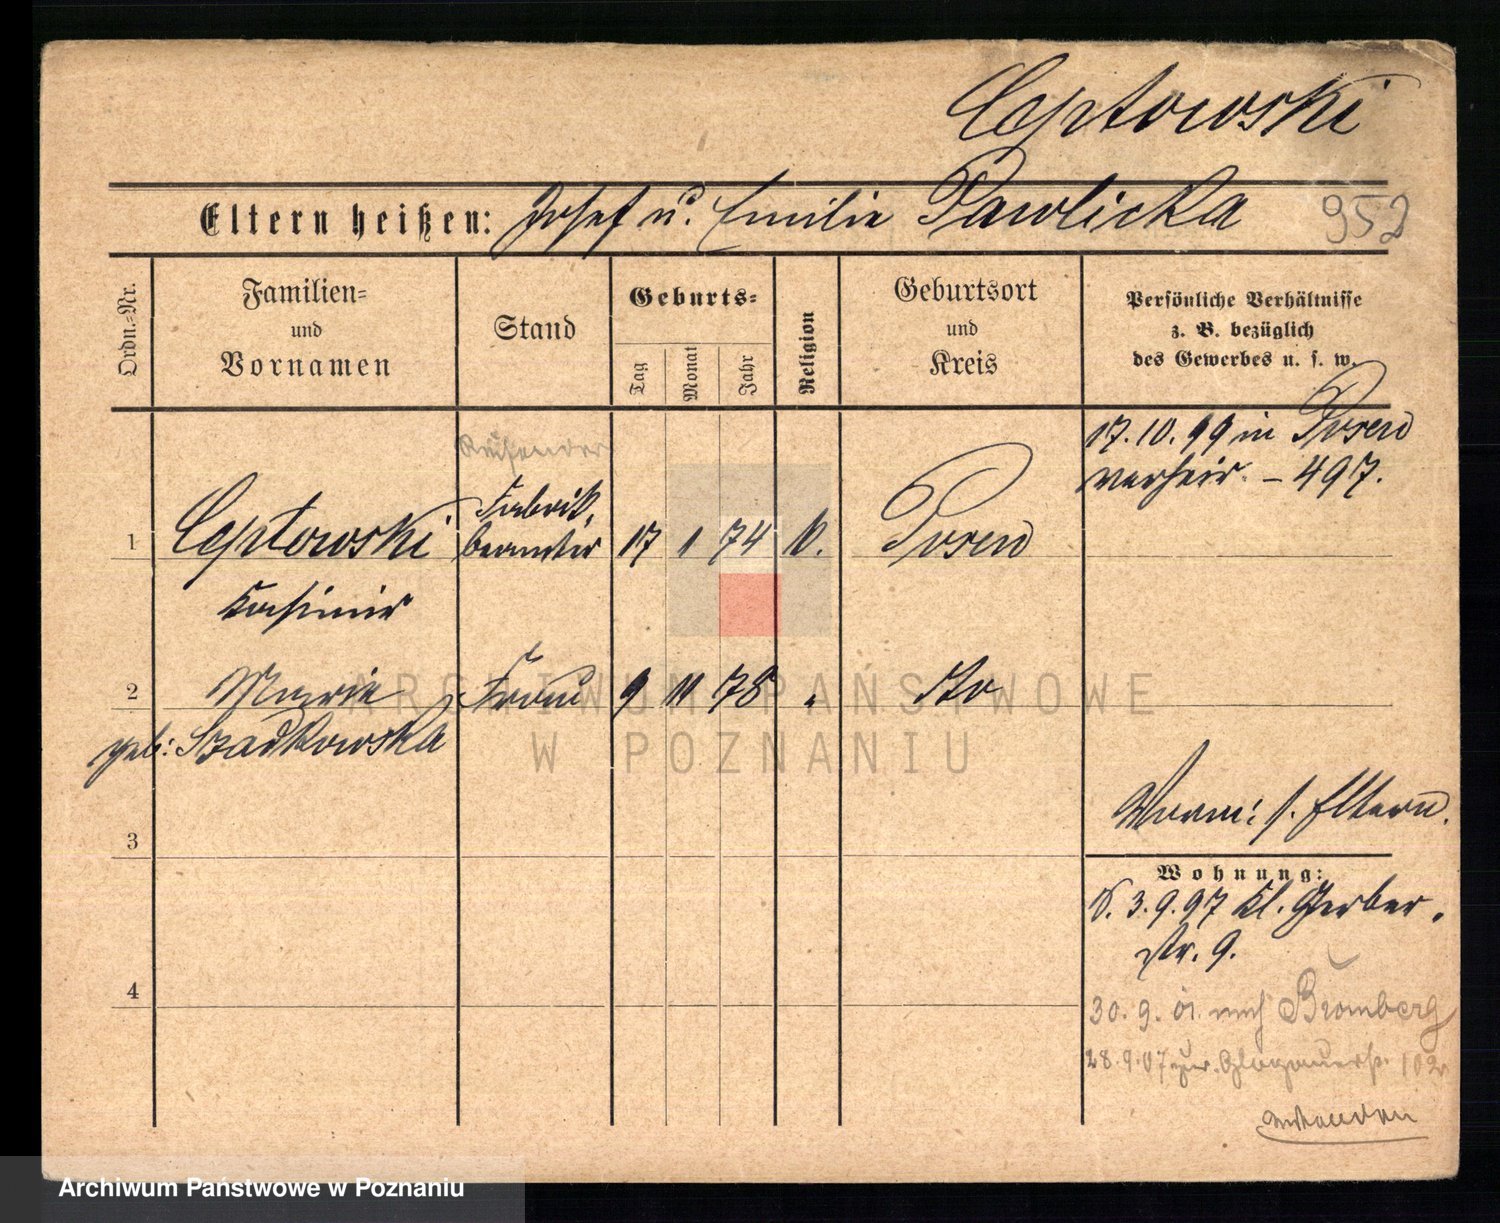 Ceptowski
Eltern heißen: Josef u. Emilie Pawlicka 952
Ordn.-Nr.
Familien-
und
Vornamen
Stand
Geburts-
Tag
Monat
Jahr
Religion
Geburtsort
und
Kreis
Persönliche Verhältnisse
z. B. bezüglich
des Gewerbes u. s. w.
17. 10. 99 in Posen
verheir. – 497.
1 Ceptowski
Kasimir
Reisender
Fabrik
beamter
17 1 74 k. Posen
2 Marie
geb: Szadkowska
Frau 9 11 78 " dto
Vorm: s. Eltern.
3
Wohnung:
V. 3. 9. 97 Kl. Gerber
str. 9.
4
30. 9. 01. nach Bromberg
28. 9. 07 zur. Glogauerstr. 102
ARCHIWUM PAŃSTWOWE
W POZNANIU
Archiwum Państwowe w Poznaniu